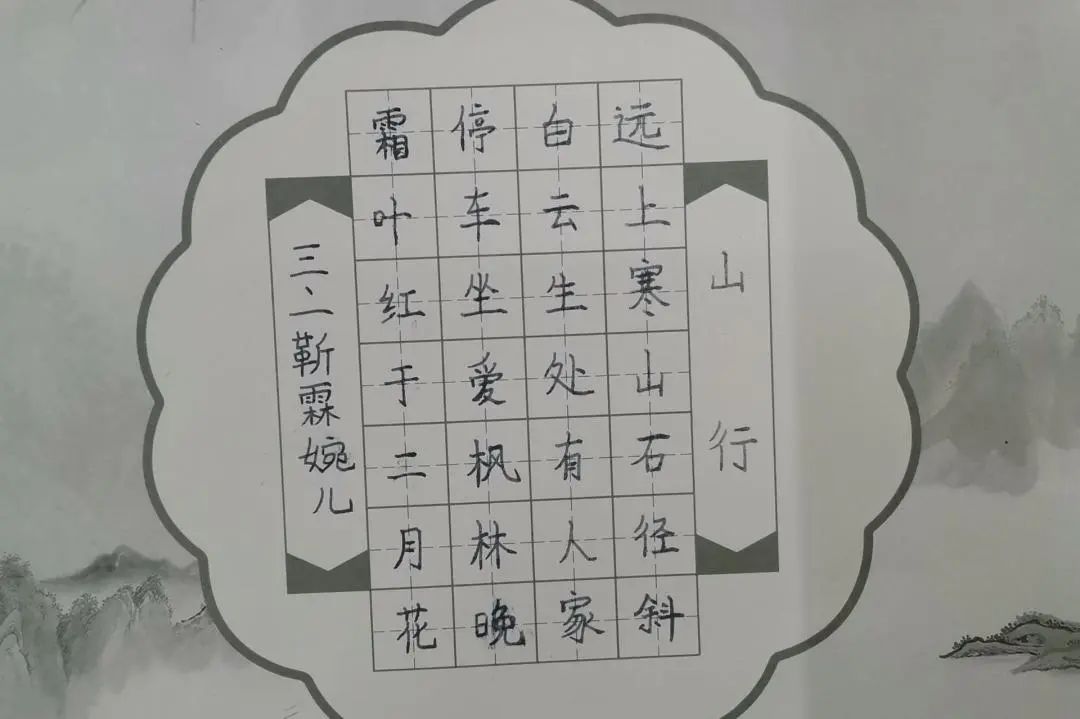 山行
远上寒山石径斜
白云生处有人家
停车坐爱枫林晚
霜叶红于二月花
三二靳霖婉儿